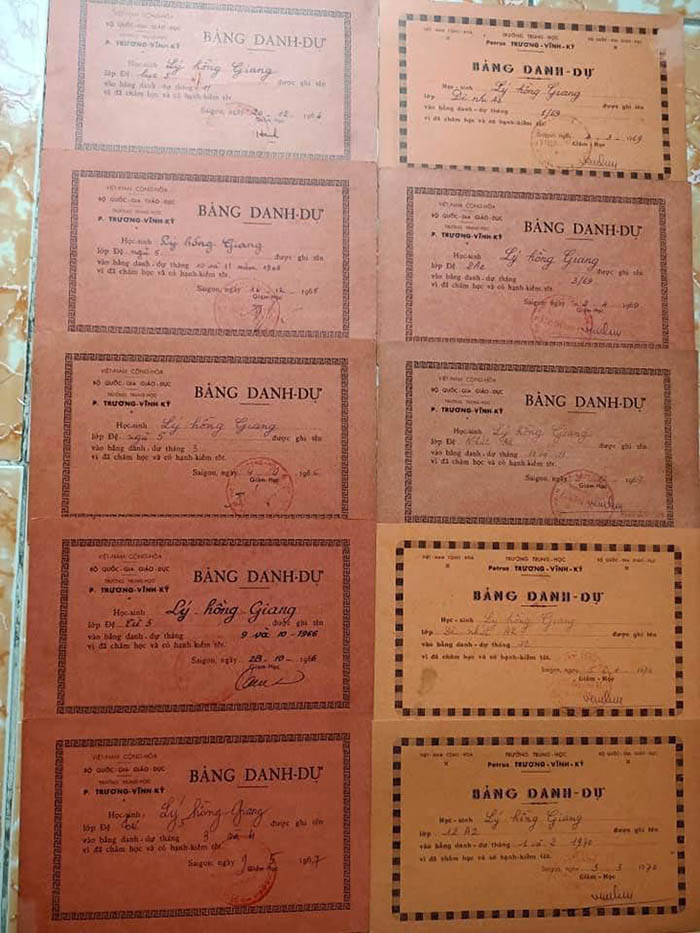 VIỆT-NAM CỘNG-HÒA
BỘ QUỐC-GIA GIÁO-DỤC
TRƯỜNG TRUNG-HỌC
P. TRƯƠNG-VĨNH-KÝ
BẢNG DANH-DỰ
Học-sinh Lý hồng Giang
lớp Đệ lục 5 được ghi tên
vào bảng danh-dự tháng 11
vì đã chăm học và có hạnh-kiểm tốt.
Saigon, ngày 20-12-1964
Giám Học
VIỆT-NAM CỘNG-HÒA
BỘ QUỐC-GIA GIÁO-DỤC
TRƯỜNG TRUNG-HỌC
P. TRƯƠNG-VĨNH-KÝ
BẢNG DANH-DỰ
Học-sinh Lý hồng Giang
lớp Đệ ngũ 5 được ghi tên
vào bảng danh-dự tháng 10 và 11 năm 1965
vì đã chăm học và có hạnh-kiểm tốt.
Saigon, ngày 16-12-1965
Giám Học
VIỆT-NAM CỘNG-HÒA
BỘ QUỐC-GIA GIÁO-DỤC
TRƯỜNG TRUNG-HỌC
P. TRƯƠNG-VĨNH-KÝ
BẢNG DANH-DỰ
Học-sinh Lý hồng Giang
lớp Đệ ngũ 5 được ghi tên
vào bảng danh-dự tháng 3
vì đã chăm học và có hạnh-kiểm tốt.
Saigon, ngày 1966
Giám Học
VIỆT-NAM CỘNG-HÒA
BỘ QUỐC-GIA GIÁO-DỤC
TRƯỜNG TRUNG-HỌC
P. TRƯƠNG-VĨNH-KÝ
BẢNG DANH-DỰ
Học-sinh Lý hồng Giang
lớp Đệ tứ 5 được ghi tên
vào bảng danh-dự tháng 9 và 10-1966
vì đã chăm học và có hạnh-kiểm tốt.
Saigon, ngày 28-10-1966
Giám Học
VIỆT-NAM CỘNG-HÒA
BỘ QUỐC-GIA GIÁO-DỤC
TRƯỜNG TRUNG-HỌC
P. TRƯƠNG-VĨNH-KÝ
BẢNG DANH-DỰ
Học-sinh Lý hồng Giang
lớp Đệ tứ 5 được ghi tên
vào bảng danh-dự tháng 3 và 4
vì đã chăm học và có hạnh-kiểm tốt.
Saigon, ngày 9-5-1967
Giám Học
VIỆT NAM CỘNG HÒA
TRƯỜNG TRUNG-HỌC
BỘ QUỐC GIA GIÁO DỤC
Petrus TRƯƠNG-VĨNH-KÝ
BẢNG DANH-DỰ
Học-sinh Lý hồng Giang
lớp Đệ nhị A2 được ghi tên
vào bảng danh-dự tháng 1/69
vì đã chăm học và có hạnh-kiểm tốt.
Saigon, ngày 3-1969
Giám-Học
VIỆT-NAM CỘNG-HÒA
BỘ QUỐC-GIA GIÁO-DỤC
TRƯỜNG TRUNG-HỌC
P. TRƯƠNG-VĨNH-KÝ
BẢNG DANH-DỰ
Học-sinh Lý hồng Giang
lớp Đệ 2A2 được ghi tên
vào bảng danh-dự tháng 3/69
vì đã chăm học và có hạnh-kiểm tốt.
Saigon, ngày 2-4-1969
Giám Học
VIỆT-NAM CỘNG-HÒA
BỘ QUỐC-GIA GIÁO-DỤC
TRƯỜNG TRUNG-HỌC
P. TRƯƠNG-VĨNH-KÝ
BẢNG DANH-DỰ
Học-sinh Lý hồng Giang
lớp Đệ Nhất A2 được ghi tên
vào bảng danh-dự tháng 10 và 11
vì đã chăm học và có hạnh-kiểm tốt.
Saigon, ngày 196
Giám Học
VIỆT-NAM CỘNG HÒA
TRƯỜNG TRUNG-HỌC
BỘ QUỐC GIA GIÁO-DỤC
Petrus TRƯƠNG-VĨNH-KÝ
BẢNG DANH-DỰ
Học-sinh Lý hồng Giang
lớp Đệ nhất A2 được ghi tên
vào bảng danh-dự tháng 12
vì đã chăm học và có hạnh-kiểm tốt.
Saigon, ngày 1970
Giám-Học
VIỆT-NAM CỘNG HÒA
TRƯỜNG TRUNG-HỌC
BỘ QUỐC-GIA GIÁO-DỤC
Petrus TRƯƠNG-VĨNH-KÝ
BẢNG DANH-DỰ
Học-sinh Lý hồng Giang
lớp 12 A2 được ghi tên
vào bảng danh-dự tháng 1 và 2 1970
vì đã chăm học và có hạnh-kiểm tốt.
Saigon, ngày 3-3-1970
Giám-Học